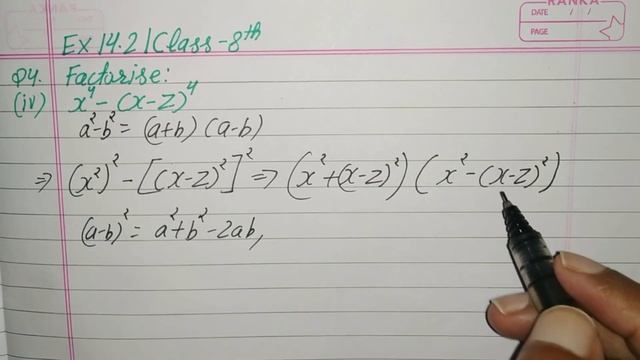 RANKA
DATE / /
PAGE
Ex 14.2 | Class-8th
Q4. Factorise:
(iv) x⁴ - (x-z)⁴
a² - b² = (a+b) (a-b)
⇒ (x²)² - [(x-z)²]² ⇒ (x² + (x-z)²) (x² - (x-z)²)
(a-b)² = a² + b² - 2ab,